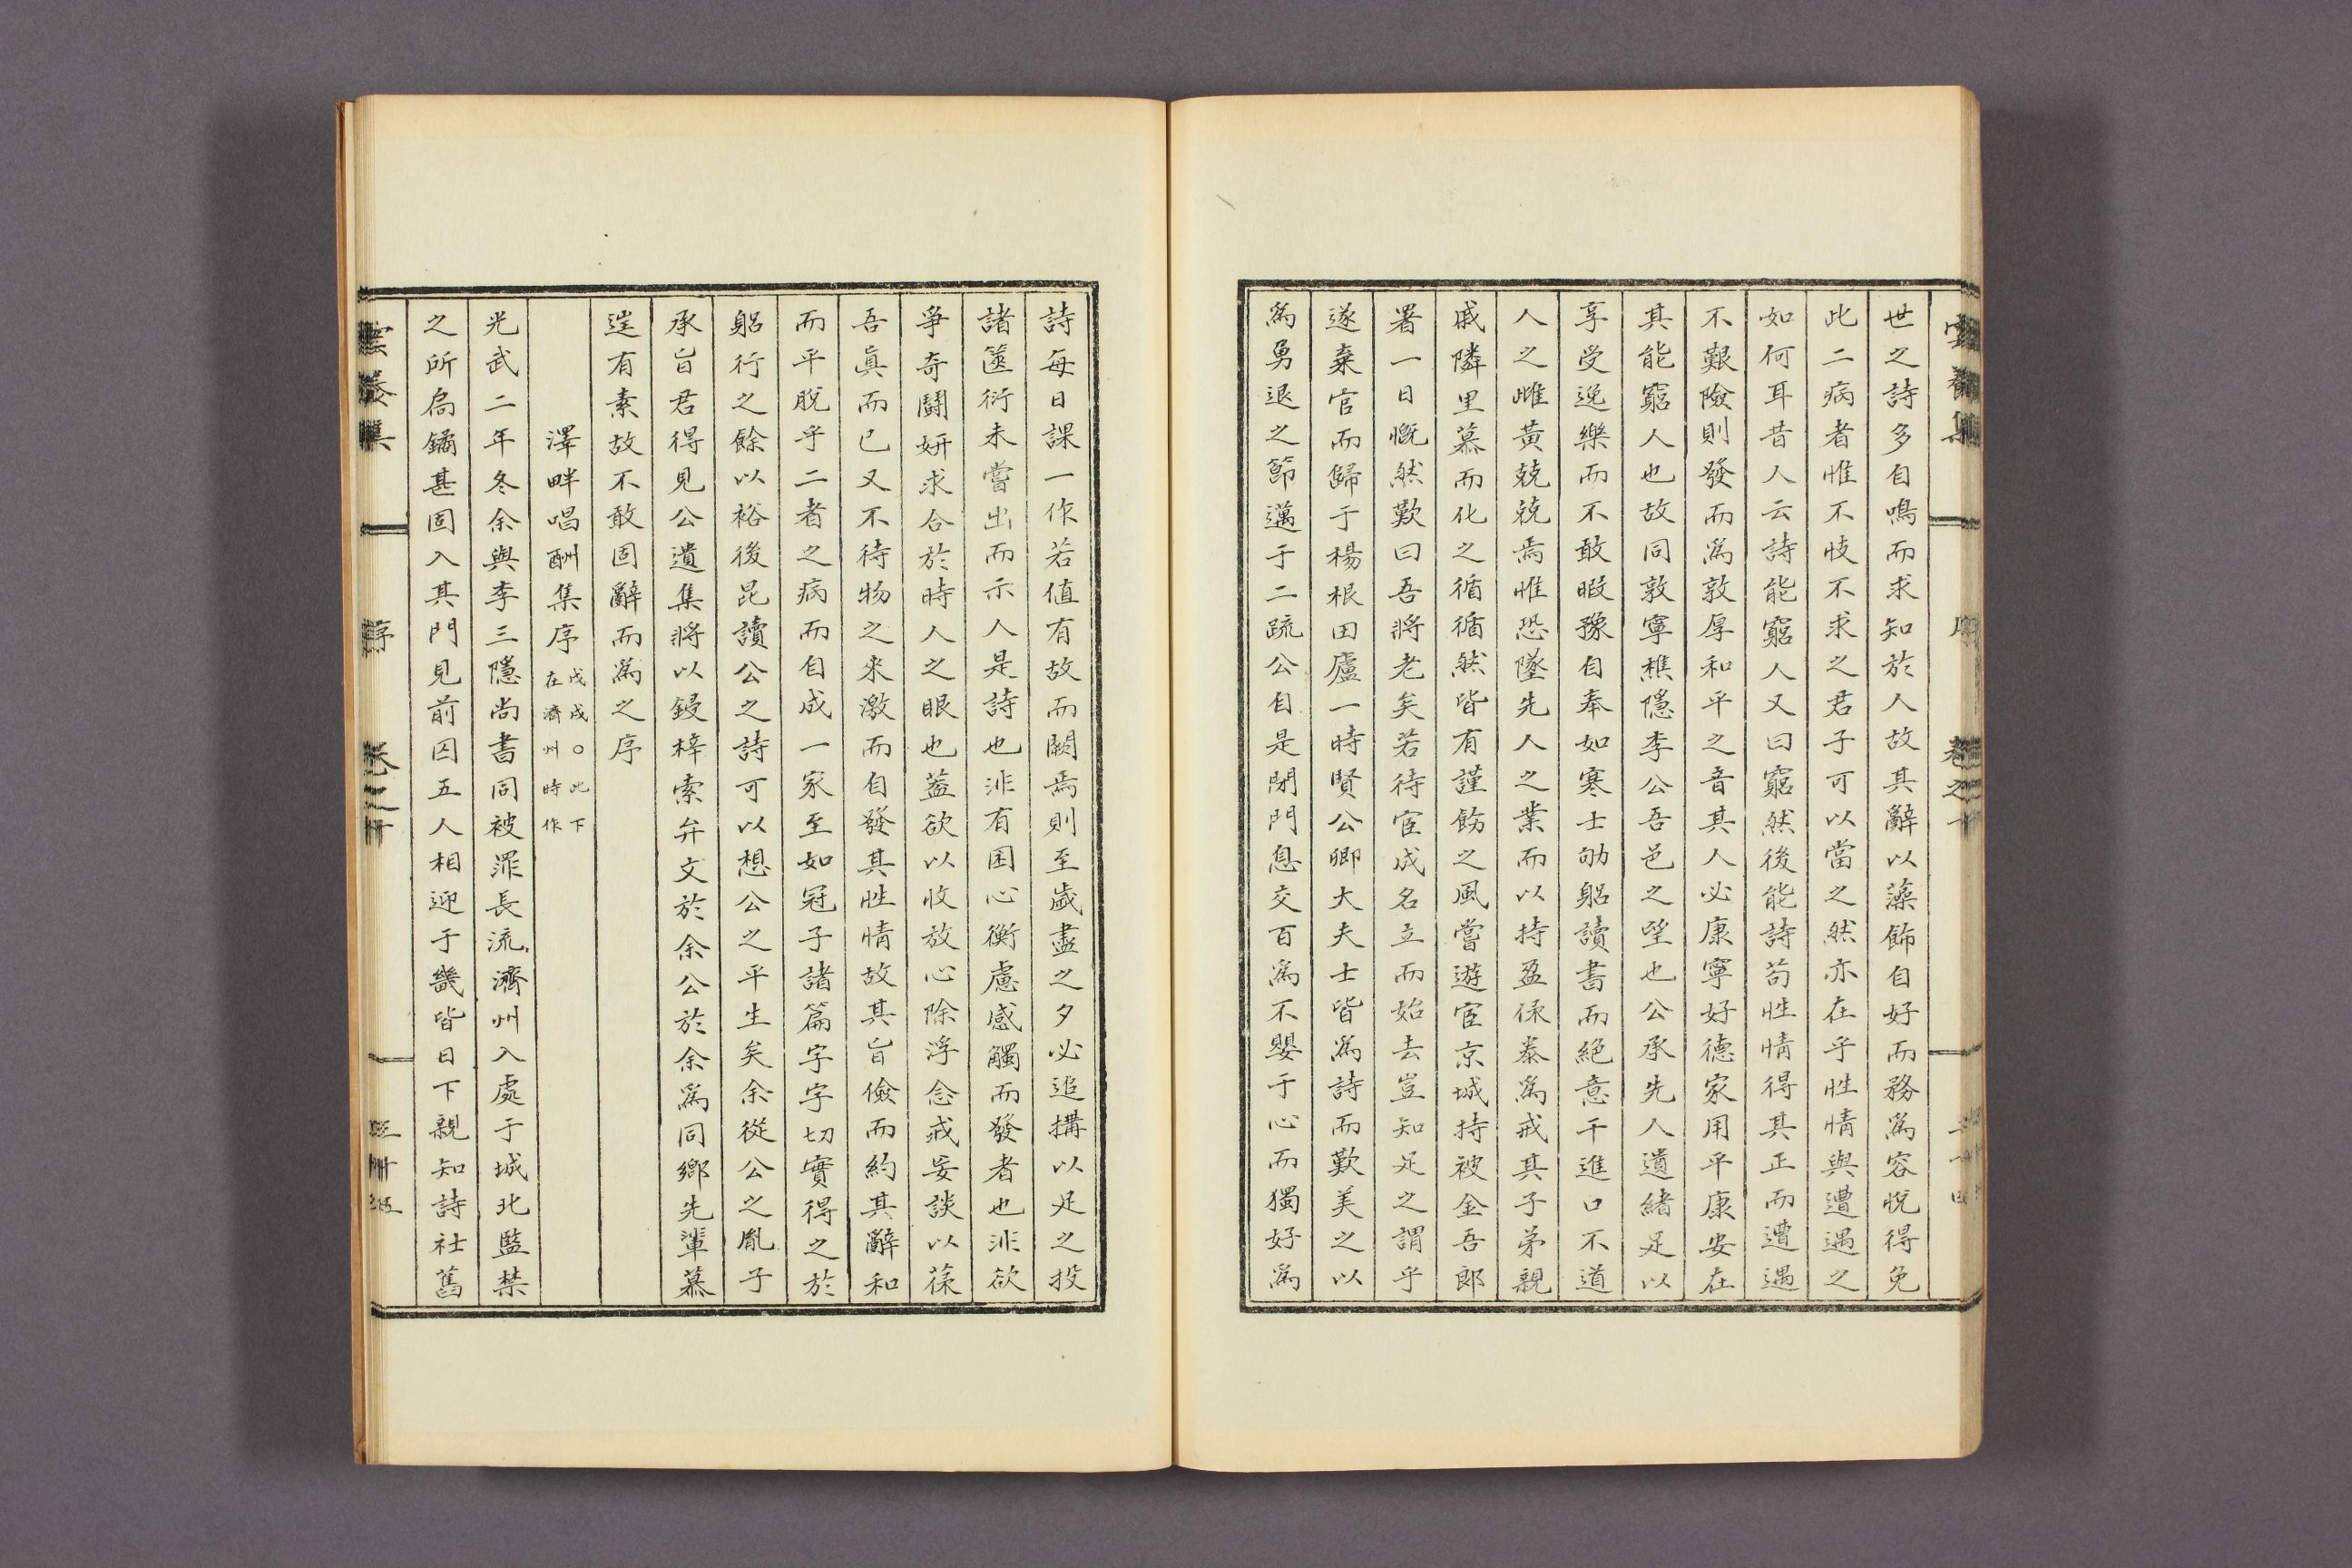 世之詩多自鳴而求知於人故其辭以藻飾自好而務爲容悅得免
此二病者惟不忮不求之君子可以當之然亦在乎性情與遭遇之
如何耳昔人云詩能窮人又曰窮然後能詩苟性情得其正而遭遇
不艱險則發而爲敦厚和平之音其人必康寧好德家用平康安在
其能窮人也故同敦寧樵隱李公吾邑之望也公承先人遺緖足以
享受逸樂而不敢暇豫自奉如寒士劬躳讀書而絕意干進口不道
人之雌黃兢兢焉惟恐墜先人之業而以持盈保泰爲戒其子弟親
戚隣里慕而化之循循然皆有謹飭之風嘗遊宦京城持被金吾郞
署一日慨然歎曰吾將老矣若待宦成名立而始去豈知足之謂乎
遂棄官而歸于楊根田廬一時賢公卿大夫士皆爲詩而歎美之以
爲勇退之節邁于二疏公自是閉門息交百爲不嬰于心而獨好爲
詩每日課一作若値有故而闕焉則至歲盡之夕必追搆以足之投
諸篋衍未嘗出而示人是詩也非有困心衡慮感觸而發者也非欲
爭奇鬪姸求合於時人之眼也蓋欲以收放心除浮念戒妄談以葆
吾眞而已又不待物之來激而自發其性情故其旨儉而約其辭和
而平脫乎二者之病而自成一家至如冠子諸篇字字切實得之於
躳行之餘以裕後昆讀公之詩可以想公之平生矣余從公之胤子
承旨君得見公遺集將以鋟梓索弁文於余公於余爲同鄕先輩慕
𨓏有素故不敢固辭而爲之序
澤畔唱酬集序 戊戌○此下在濟州時作
光武二年冬余與李三隱尙書同被罪長流濟州入處于城北監禁
之所扃鐍甚固入其門見前囚五人相迎于畿皆日下親知詩社舊
雲養集
序
卷之十